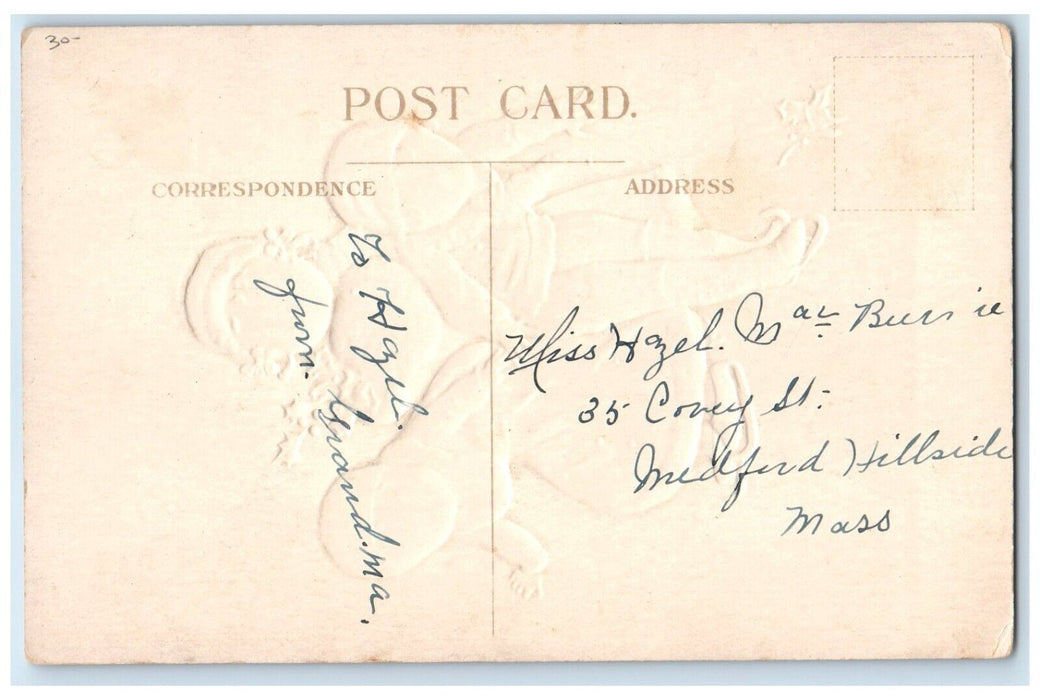 30-
POST CARD.
CORRESPONDENCE
ADDRESS
To Hazel.
from. Grand.ma.
Miss Hazel. Mac Burnie
35 Covey St.
Medford Hillside
Mass